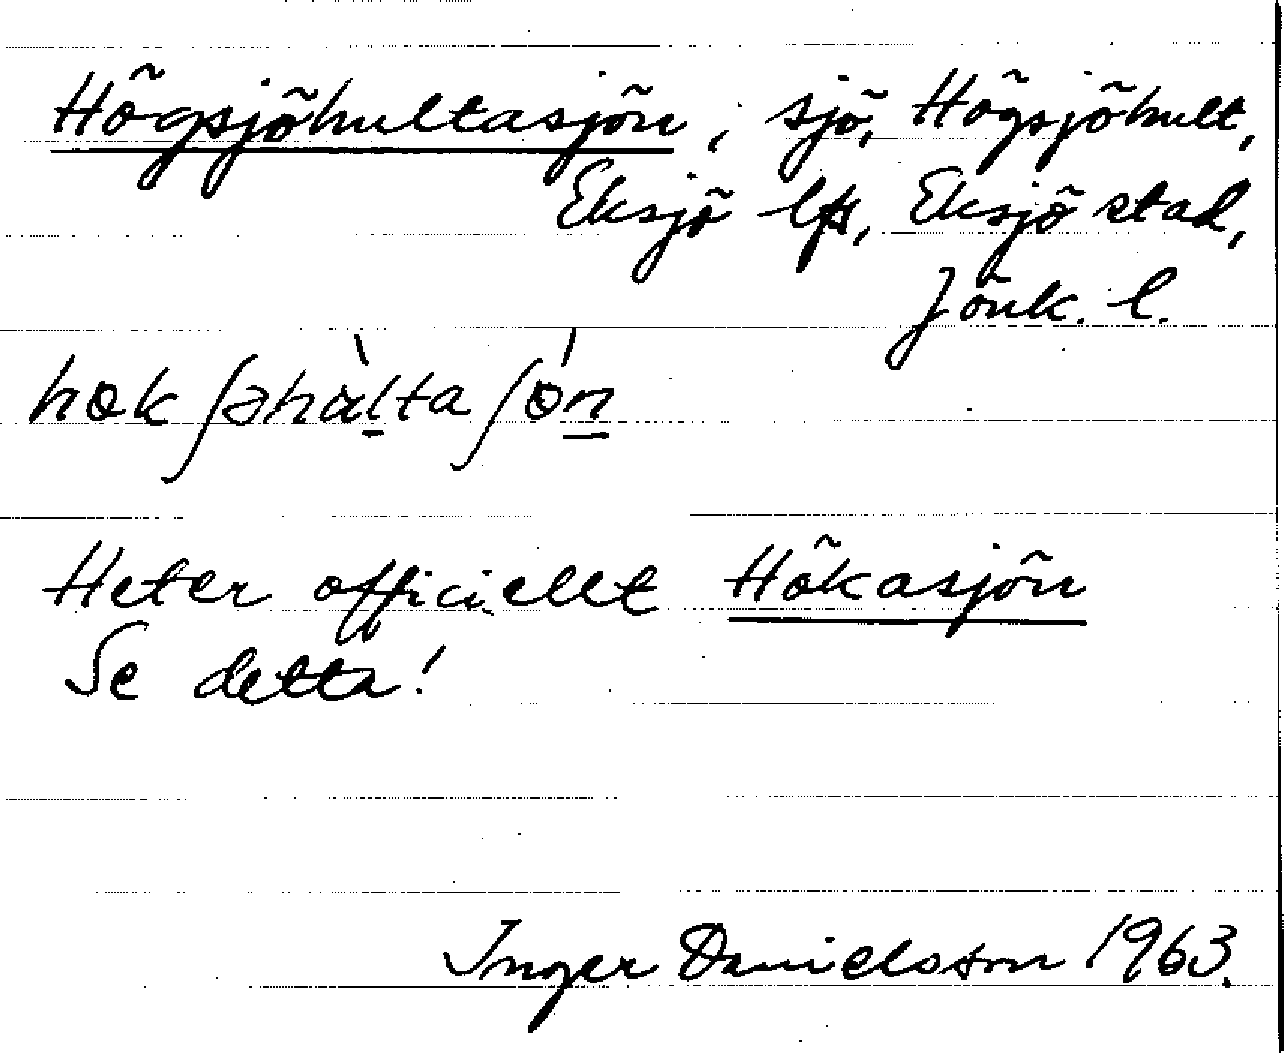 Högsjöhultasjön, sjö, Högsjöhult,
Eksjö lfs, Eksjö stad,
Jönk. l.
høkʃəhàltaʃøń
Heter officiellt Hökasjön
Se detta!
Inger Danielsson 1963.